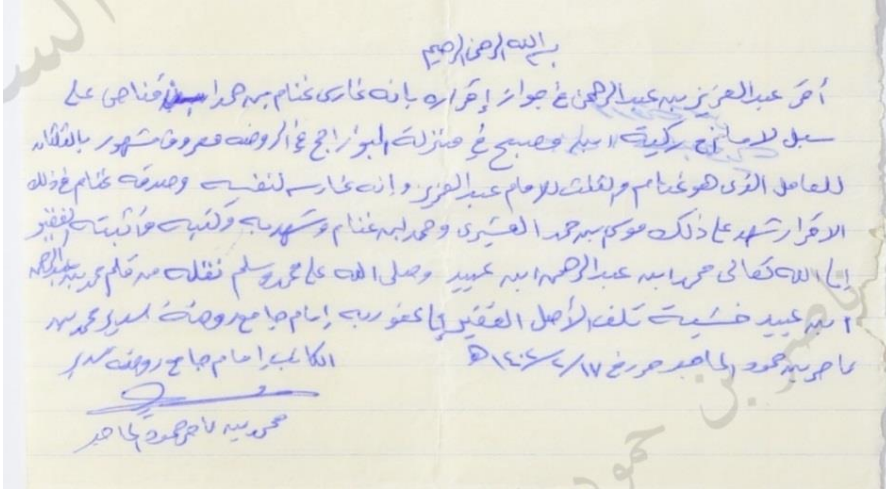 بسم الله الرحمن الرحيم
أقر عبد العزيز بن عبد الرحمن في جواز إقراره بانه غارس غنام بن حمد قناصي على
سبل لامام ركية ابن مصبح في منزلة البوراجح في الروضه معروف مشهور بالثلثان
للعامل الذي هو غنام والثلث للامام عبد العزيز وانه غارس لنفسه وصدقه غنام في ذلك
الاقرار شهد على ذلك موسى بن حمد العشيري وحمد بن غنام وشهد به وكتبه وأثبته الفقير
إلى الله تعالى محمد ابن عبد الرحمن ابن عبيد وصلى الله على محمد وسلم نقله من قلم محمد بن عبد الرحمن
ابن عبيد خشية تلف الأصل الفقير إلى عفو ربه إمام جامع روضة سدير محمد بن
ناصر بن حمود الماجد حرر في ١٤٠٤/٢/١٧ هـ
الكاتب إمام جامع روضة سدير
محمد بن ناصر حمود الماجد
ناصر بن حمود